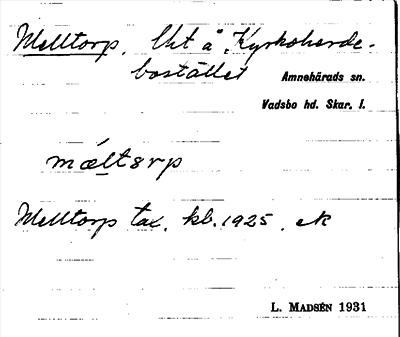 Melltorp. Uht å Kyrkoherde-
bostället
Amnehärads sn.
Vadsbo hd. Skar. l.
mæltɜrp
Melltorp tax. kb. 1925. ek
L. MADSÉN 1931